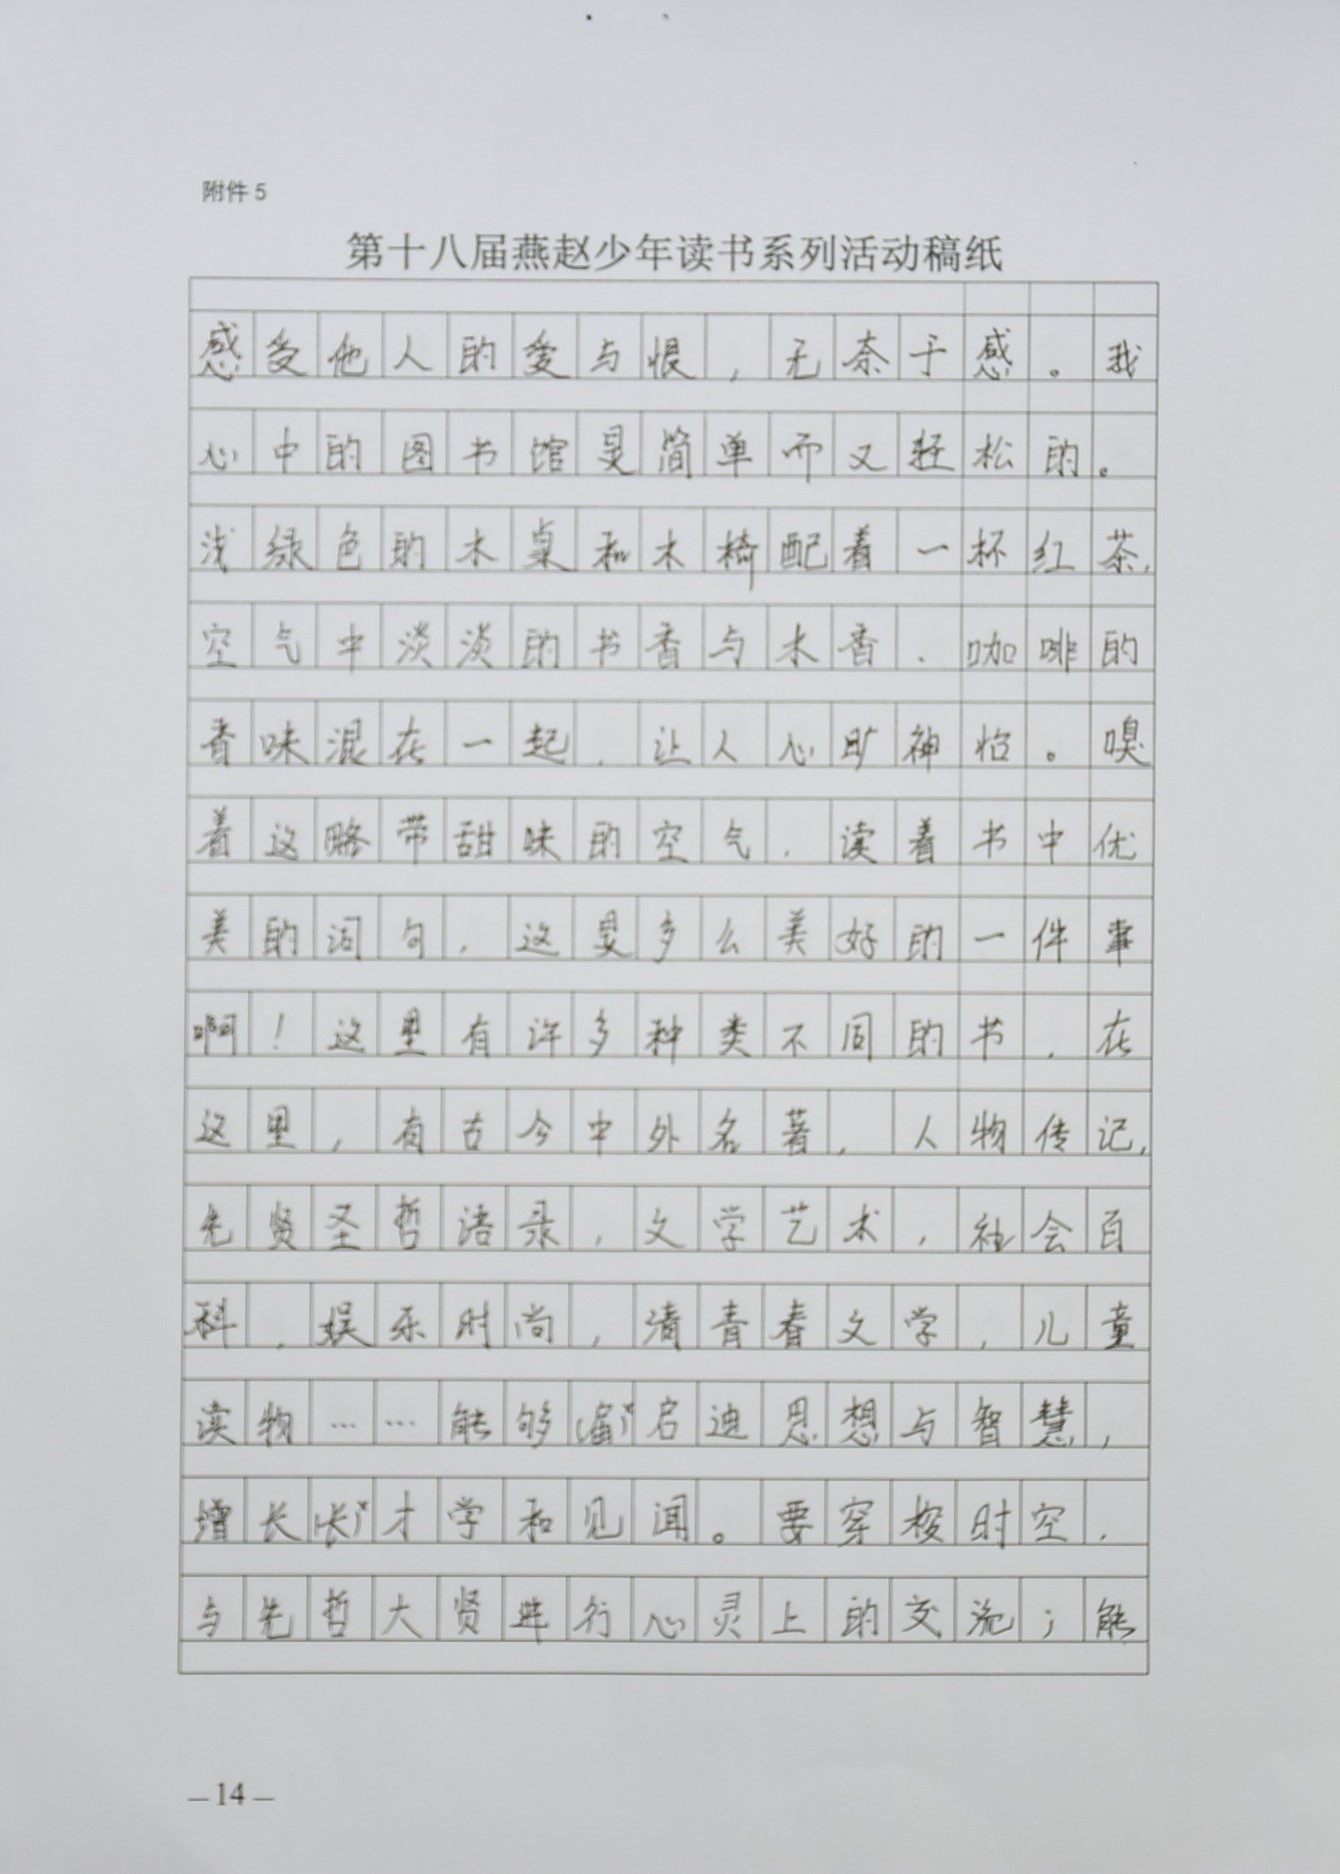 附件 5
第十八届燕赵少年读书系列活动稿纸
感受他人的爱与恨，无奈于感。我
心中的图书馆是简单而又轻松的。
浅绿色的木桌和木椅配着一杯红茶，
空气中淡淡的书香与木香、咖啡的
香味混在一起，让人心旷神怡。嗅
着这略带甜味的空气，读着书中优
美的词句，这是多么美好的一件事
啊！这里有许多种类不同的书，在
这里，有古今中外名著，人物传记，
先贤圣哲语录，文学艺术，社会百
科，娱乐时尚，清青春文学，儿童
读物……能够启迪思想与智慧，
增长才学和见闻。要穿梭时空，
与先哲大贤进行心灵上的交流；能
—14—